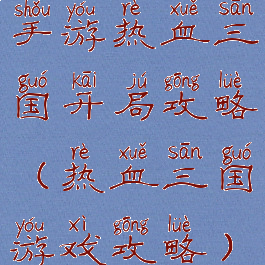 shǒu yóu rè xuè sān
手游热血三
guó kāi jú gōng lüè
国开局攻略
rè xuě sān guó
（热血三国
yóu xì gōng lüè
游戏攻略）